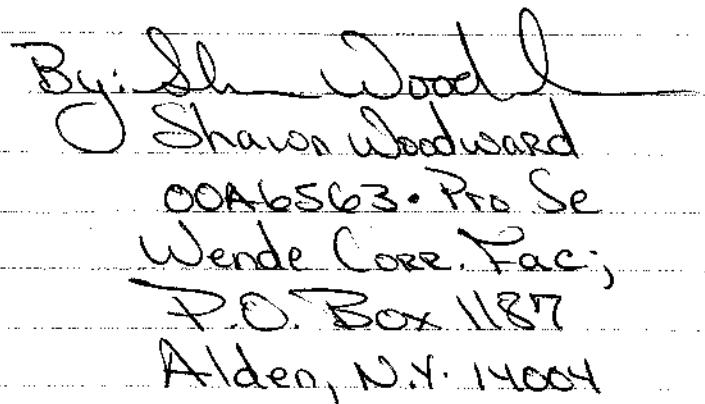 By: Sh Wood
Shawn Woodward
00A6563. Pro Se
Wende Corr. Fac;
P.O. Box 1187
Alden, N.Y. 14004